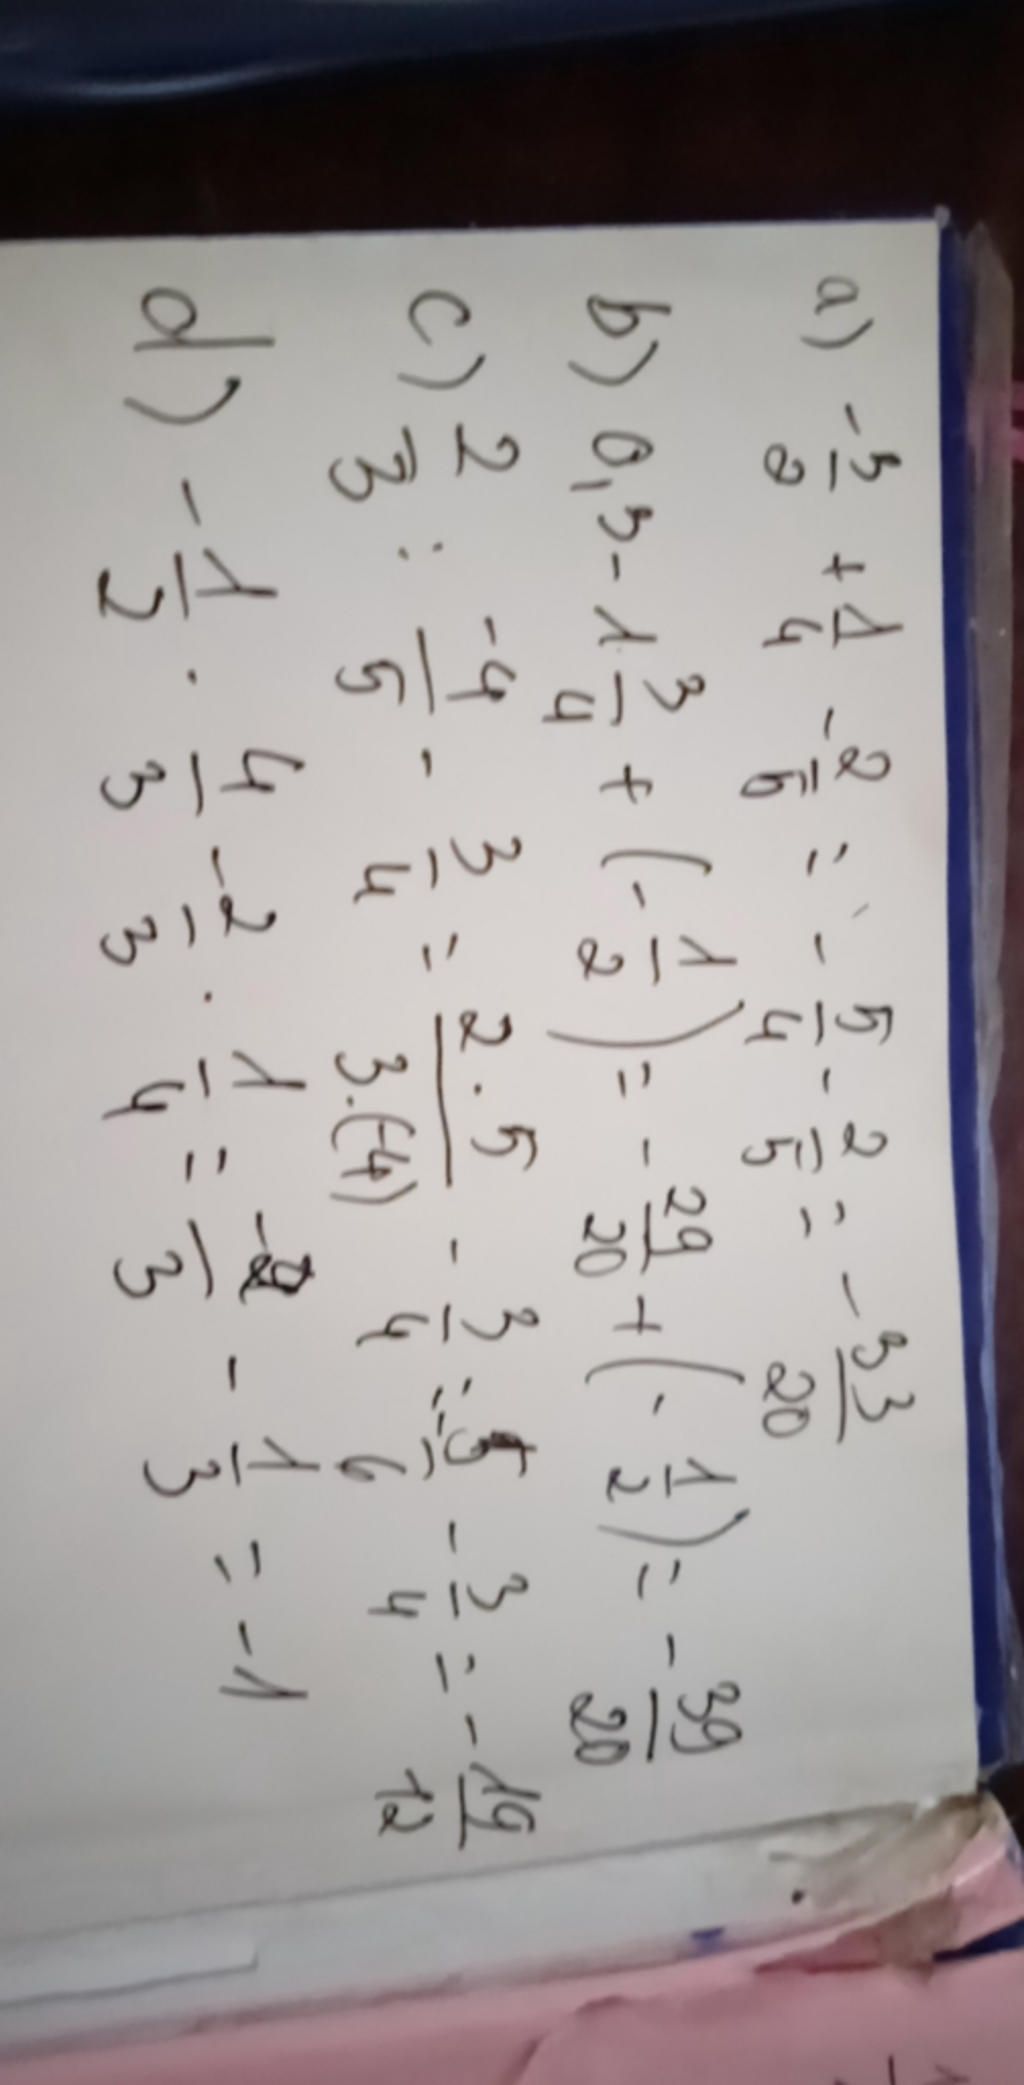 a) -3/2 + 1/4 - 2/5 = - 5/4 - 2/5 = - 33/20
b) 0,3 - 1 3/4 + (- 1/2) = - 29/20 + (- 1/2) = - 39/20
c) 2/3 : -4/5 - 3/4 = 2.5/3.(-4) - 3/4 = -5/6 - 3/4 = - 19/12
d) - 1/2 . 4/3 - 2/3 . 1/4 = -2/3 - 1/3 = -1